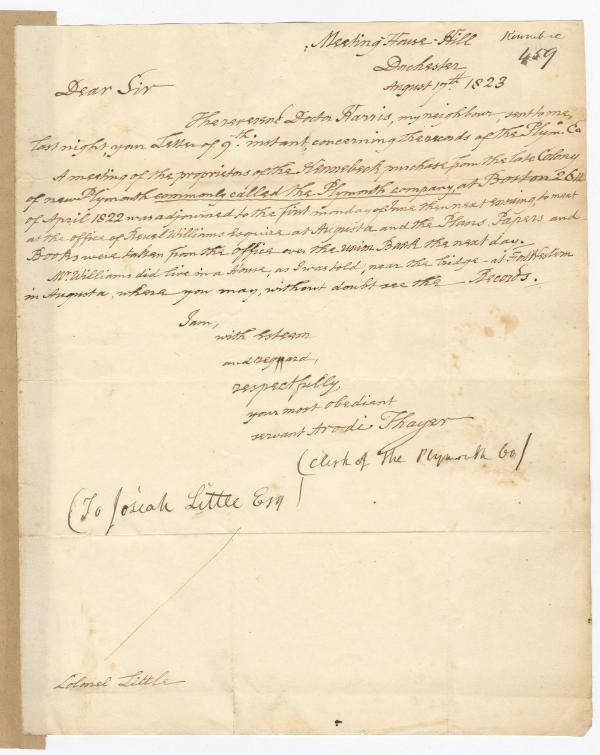 Meeting House-Hill
Kennebec
Dochester
459
August 17th 1823
Dear Sir
The reverend Doctor Harris, my neighbour, sent to me,
last night your Letter of 9th instant, concerning the records of the Plym. Co
A meeting of the proprietors of the Kennebeck purchase from the late Colony
of new Plymouth commonly called the Plymouth company, at Boston 26th
of April 1822 was adjourned to the first monday of June then next ensuing to meet
at the office of Reuel Williams Esquire at Augusta and the Plans, Papers and
Books were taken from the office over the union Bank the next day.
Mr. Williams did live in a House, as I was told, near the bridge at Fort Western
in Augusta, where you may, without doubt see the Records.
I am,
with Esteem
and regard,
respectfully,
your most obediant
servant Arodi Thayer
(Clerk of The Plymouth Co)
(To Josiah Little Esq)
Colonel Little